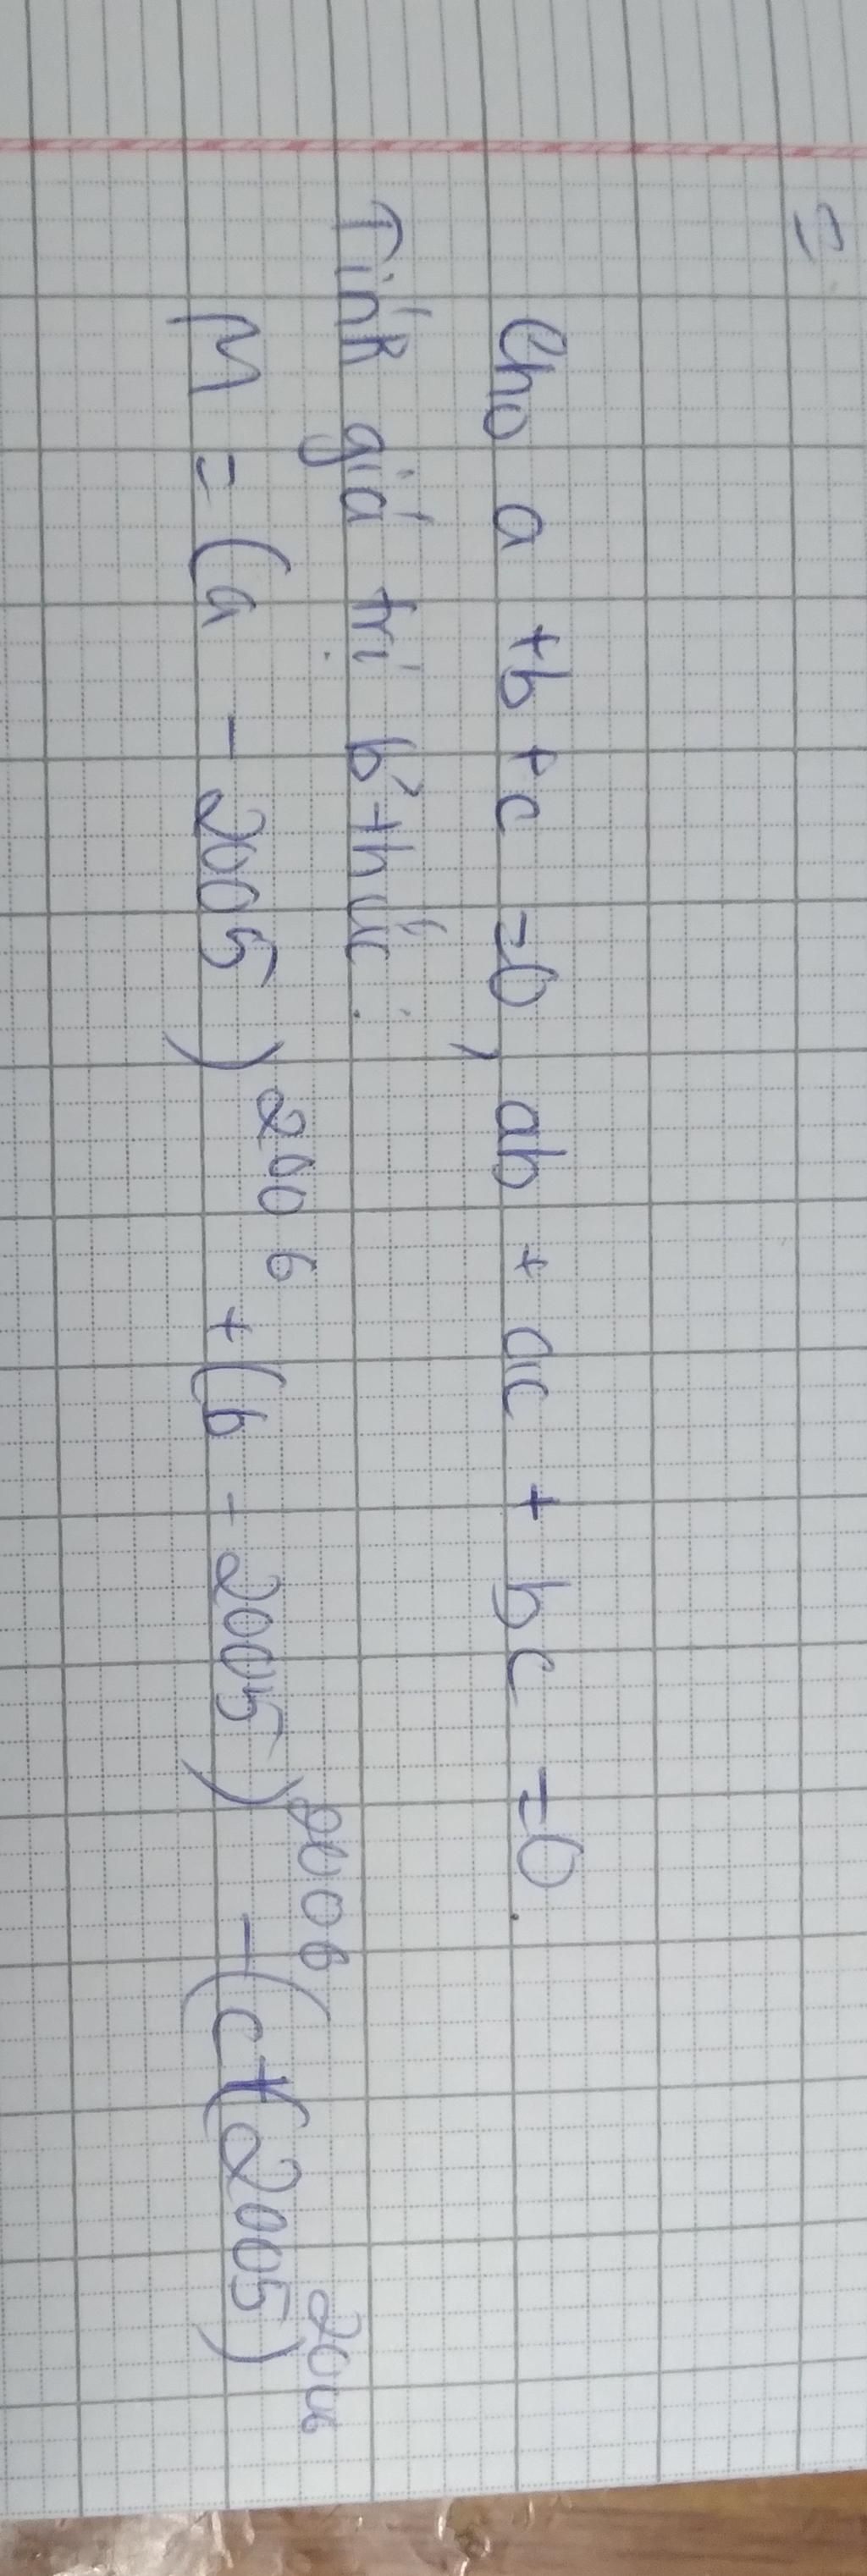 Cho a + b + c = 0, ab + ac + bc = 0.
Tính giá trị b' thức:
M = (a - 2005)^2006 + (b - 2005)^2006 - (c + (2005)^2006